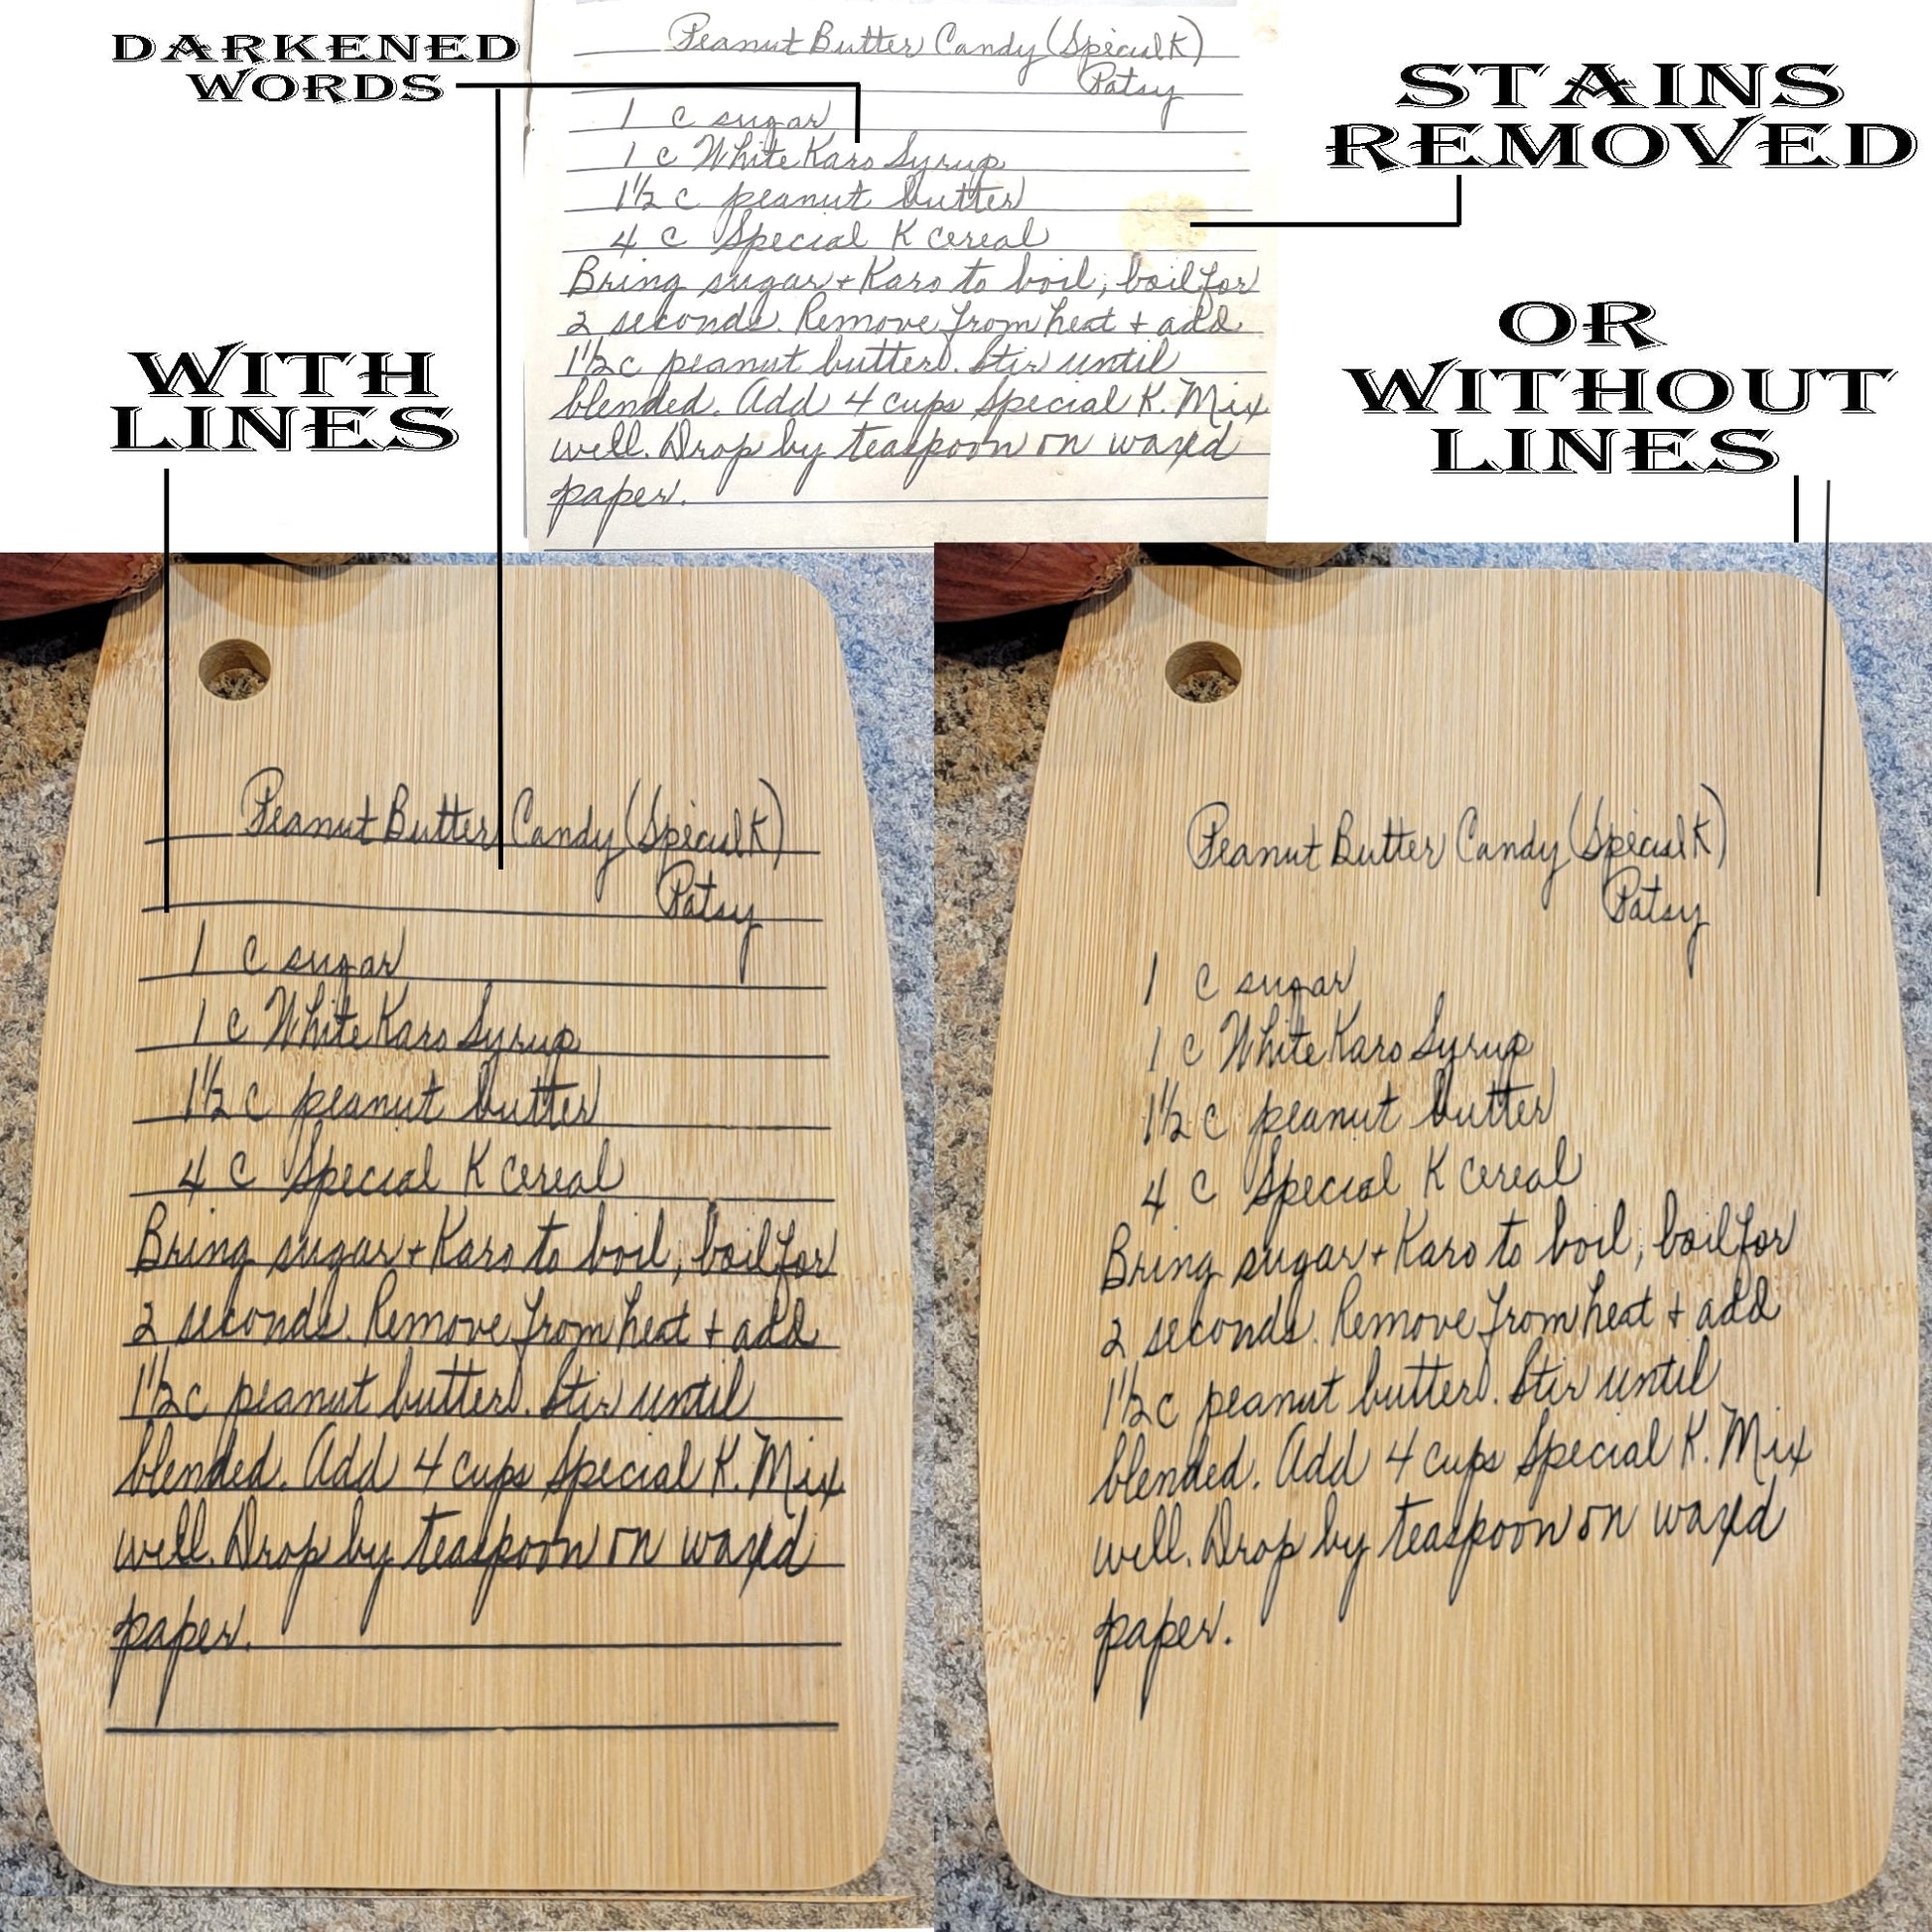 DARKENED
WORDS
Peanut Butter Candy (Special K)
Patsy
1 c sugar
1 c White Karo Syrup
1½ c peanut butter
4 c Special K cereal
Bring sugar + Karo to boil; boil for
2 seconds. Remove from heat + add
1½ c peanut butter. Stir until
blended. Add 4 cups Special K. Mix
well. Drop by teaspoon on waxed
paper.
STAINS
REMOVED
WITH
LINES
OR
WITHOUT
LINES
Peanut Butter Candy (Special K)
Patsy
1 c sugar
1 c White Karo Syrup
1½ c peanut butter
4 c Special K cereal
Bring sugar + Karo to boil; boil for
2 seconds. Remove from heat + add
1½ c peanut butter. Stir until
blended. Add 4 cups Special K. Mix
well. Drop by teaspoon on waxed
paper.
Peanut Butter Candy (Special K)
Patsy
1 c sugar
1 c White Karo Syrup
1½ c peanut butter
4 c Special K cereal
Bring sugar + Karo to boil; boil for
2 seconds. Remove from heat + add
1½ c peanut butter. Stir until
blended. Add 4 cups Special K. Mix
well. Drop by teaspoon on waxed
paper.